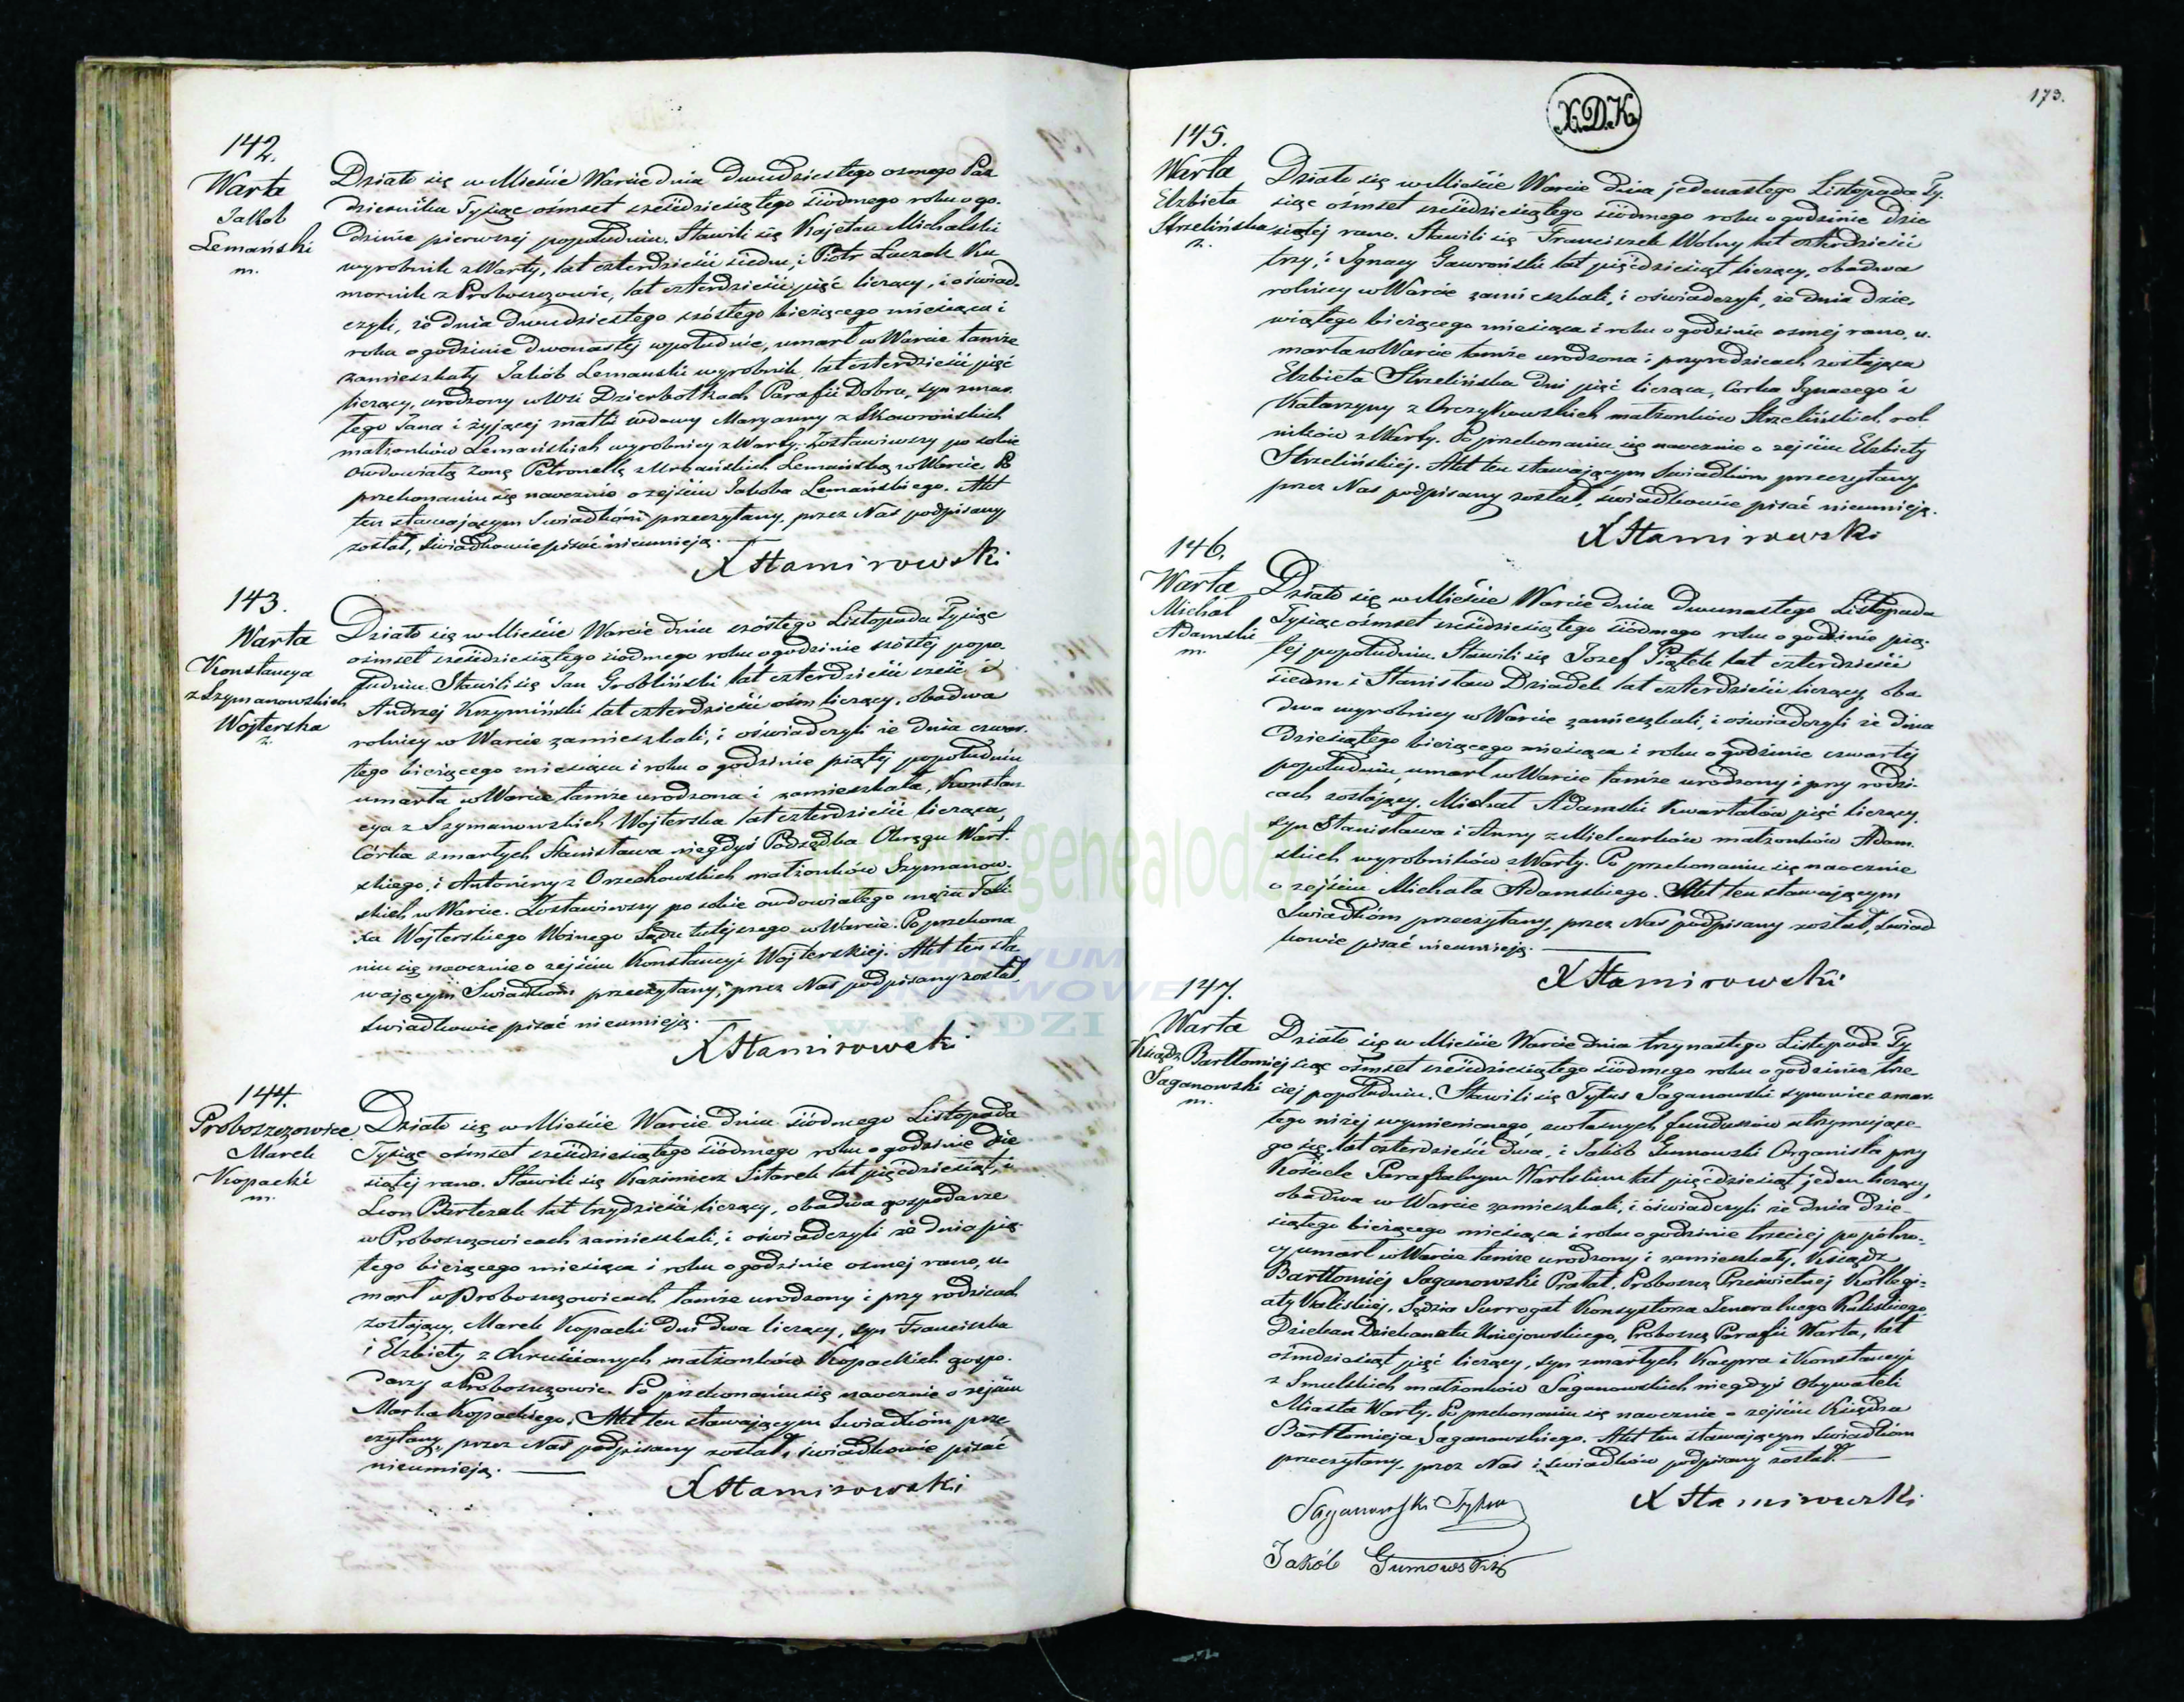 142.
Warta
Jakob
Lemański
m.
Działo się w Mieście Warcie dnia dwudziestego osmego Paź
dziernika Tysiąc ośmset sześdziesiątego siódmego roku o go-
dzinie pierwszej popołudniu. Stawili się Kajetan Michalski
wyrobnik z Warty, lat czterdzieści siedm, i Piotr Łuczak Ko
mornik z Proboszczowic, lat czterdzieści pięć liczący, i oświad-
czyli, że dnia dwudziestego szóstego bieżącego miesiąca i
roku o godzinie dwonastej wpołudnie, umarł w Warcie tamże
zamieszkały Jakób Lemański wyrobnik, lat czterdzieści pięć
liczący, urodzony w Wsi Dzierbotkach Parafii Dobra, syn zmar-
łego Jana i żyjącej matki wdowy Maryanny z Skowrońskich
małżonków Lemańskich wyrobnicy z Warty. Zostawiwszy po sobie
owdowiałą żonę Petronellę z Urbańskich Lemańską w Warcie. Po
przekonaniu się naocznie o zejściu Jakoba Lemańskiego. Akt
ten stawającym Świadkóm przeczytany, przez Nas podpisany
został, świadkowie pisać nieumieją.
X Stamirowski
143.
Warta
Konstancya
z Szymanowskich
Wojterska
ż.
Działo się w Mieście Warcie dnia szóstego Listopada Tysiąc
ośmset sześdziesiątego siódmego roku o godzinie szóstej popo-
łudniu. Stawili się Jan Grobliński lat czterdzieści sześć i
Andrzej Krzymiński lat czterdzieści ośm liczący, obadwa
rolnicy w Warcie zamieszkali, i oświadczyli że dnia czwar-
tego bieżącego miesiąca i roku o godzinie piątej popołudniu
umarła w Warcie tamże urodzona i zamieszkała, Konstan-
cya z Szymanowskich Wojterska lat czterdzieści licząca,
Córka zmarłych Stanisława niegdyś Podsędka Okręgu Wart-
skiego, i Antoniny z Orzechowskich małżonków Szymanow-
skich w Warcie. Zostawiwszy po sobie owdowiałego męża Felix
xa Wojterskiego Woźnego Sądu tutejszego w Warcie. Po przekona
niu się naocznie o zejściu Konstancyi Wojterskiej. Akt ten sta-
wającym Świadkóm przeczytany, przez Nas podpisany został,
świadkowie pisać nieumieją.
X Stamirowski
144.
Proboszczowice
Marek
Kopacki
m.
Działo się w Mieście Warcie dnia siódmego Listopada
Tysiąc ośmset sześdziesiątego siódmego roku o godzinie dzie
siątej rano. Stawili się Kazimierz Sitarek lat pięćdziesiąt, i
Leon Bartczak lat trzydzieści liczący, obadwa gospodarze
w Proboszczowicach zamieszkali, i oświadczyli że dnia pią-
tego bieżącego miesiąca i roku o godzinie osmej rano, u-
marł w Proboszczowicach tamże urodzony i przy rodzicach
zostający, Marek Kopacki dni dwa liczący, syn Franciszka
i Elżbiety z Chruścianych małżonków Kopackich gospo-
darzy z Proboszczowic. Po przekonaniu się naocznie o zejściu
Marka Kopackiego, Akt ten stawającym świadkóm prze
czytany, przez Nas podpisany został, świadkowie pisać
nieumieją.
X Stamirowski
173.
X.D.K.
145.
Warta
Elżbieta
Strzelińska
ż.
Działo się w Mieście Warcie dnia jedenastego Listopada Ty-
siąc ośmset sześdziesiątego siódmego roku o godzinie dzie
siątej rano. Stawili się Franciszek Wolny lat czterdzieści
trzy, i Ignacy Gawroński lat pięćdziesiąt liczący, obadwa
rolnicy w Warcie zamieszkali, i oświadczyli, że dnia dzie-
wiątego bieżącego miesiąca i roku o godzinie osmej rano, u-
marła w Warcie tamże urodzona i przy rodzicach zostająca
Elżbieta Strzelińska dni pięć licząca, Corka Ignacego i
Katarzyny z Orczykowskich małżonków Strzelińskich, rol
ników z Warty. Po przekonaniu się naocznie o zejściu Elżbiety
Strzelińskiej. Akt ten stawającym świadkóm przeczytany
przez Nas podpisany został, świadkowie pisać nieumieją.
X Stamirowski
146.
Warta
Michał
Adamski
m.
Działo się w Mieście Warcie dnia dwunastego Listopada
Tysiąc ośmset sześdziesiątego siódmego roku o godzinie pią-
tej popołudniu. Stawili się Jozef Piątek lat czterdzieści
siedm i Stanisław Dziadek lat czterdzieści liczący, oba
dwa wyrobnicy w Warcie zamieszkali, i oświadczyli że dnia
dziesiątego bieżącego miesiąca i roku o godzinie czwartej
popołudniu, umarł w Warcie tamże urodzony i przy rodzi-
cach zostający, Michał Adamski kwartałów pięć liczący,
syn Stanisława i Anny z Mielcarków małżonków Adam-
skich wyrobników z Warty. Po przekonaniu się naocznie
o zejściu Michała Adamskiego. Akt ten stawającym
świadkóm przeczytany, przez Nas podpisany został, świad
kowie pisać nieumieją.
X Stamirowski
147.
Warta
Ksiądz Bartłomiej
Saganowski
m.
Działo się w Mieście Warcie dnia trzynastego Listopada Ty
siąc ośmset sześdziesiątego siódmego roku o godzinie trze-
ciej popołudniu. Stawili się Tytus Saganowski synowiec zmar-
łego niżej wymienionego, z własnych funduszów utrzymujące-
go się, lat czterdzieści dwa, i Jakób Gumowski Organista przy
Kościele Parafialnym Wartskim lat pięćdziesiąt jeden liczący,
obadwa w Warcie zamieszkali, i oświadczyli że dnia dzie-
siątego bieżącego miesiąca i roku o godzinie trzeciej po półno-
cy umarł w Warcie tamże urodzony i zamieszkały, Ksiądz
Bartłomiej Saganowski Prałat, Proboszcz Prześwietnej Kollegi-
aty Kaliskiej, Sędzia Surrogat Konsystorza Jeneralnego Kaliskiego,
Dziekan Dziekanatu Uniejowskiego, Proboszcz Parafii Warta, lat
ośmdziesiąt pięć liczący, syn zmarłych Kacpra i Konstancyi
z Smulskich małżonków Saganowskich niegdyś Obywateli
Miasta Warty. Po przekonaniu się naocznie o zejściu Księdza
Bartłomieja Saganowskiego. Akt ten stawającym świadkóm
przeczytany, przez Nas i świadków podpisany został.
X Stamirowski
Saganowski Tytus
Jakób Gumowski
genealodzy
ARCHIWUM
PAŃSTWOWE
W ŁODZI